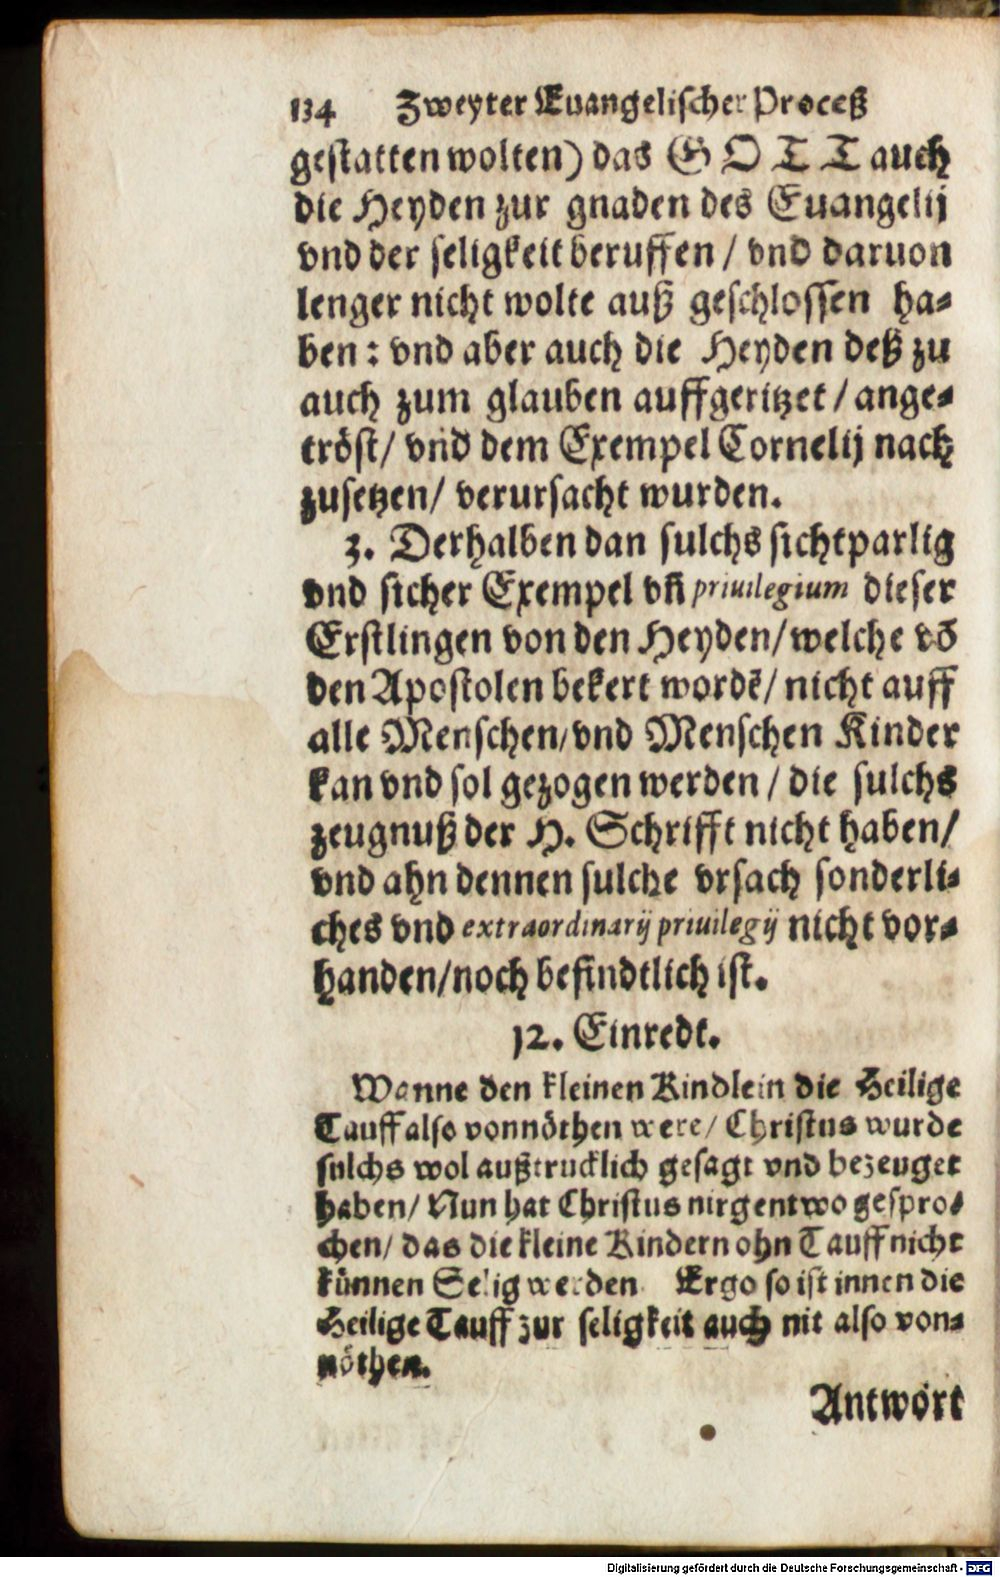 134 Zweyter Euangelischer Proceß
gestatten wolten) das GOTT auch
die Heyden zur gnaden des Euangelij
vnd der seligkeit beruffen / vnd daruon
lenger nicht wolte auß geschlossen ha-
ben: vnd aber auch die Heyden deß zu
auch zum glauben auffgeritzet / ange-
tröst / vnd dem Exempel Cornelij nach
zusetzen / verursacht wurden.
3. Derhalben dan sulchs sichtparlig
vnd sicher Exempel vñ priuilegium dieser
Erstlingen von den Heyden / welche võ
den Apostolen bekert wordẽ / nicht auff
alle Menschen / vnd Menschen Kinder
kan vnd sol gezogen werden / die sulchs
zeugnuß der H. Schrifft nicht haben /
vnd ahn dennen sulche vrsach sonderli-
ches vnd extraordinarij priuilegij nicht vor-
handen / noch befindtlich ist.
12. Einredt.
Wanne den kleinen Kindlein die Heilige
Tauff also vonnöthen were / Christus wurde
sulchs wol außtrucklich gesagt vnd bezeuget
haben / Nun hat Christus nirgentwo gespro-
chen / das die kleine Kindern ohn Tauff nicht
künnen Selig werden. Ergo so ist innen die
Heilige Tauff zur seligkeit auch nit also von-
nöthen.
Antwort
Digitalisierung gefördert durch die Deutsche Forschungsgemeinschaft - DFG